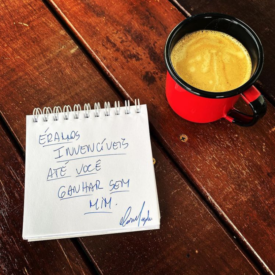 ÉRAMOS
INVENCÍVEIS
ATÉ VOCÊ
GANHAR SEM
MIM.